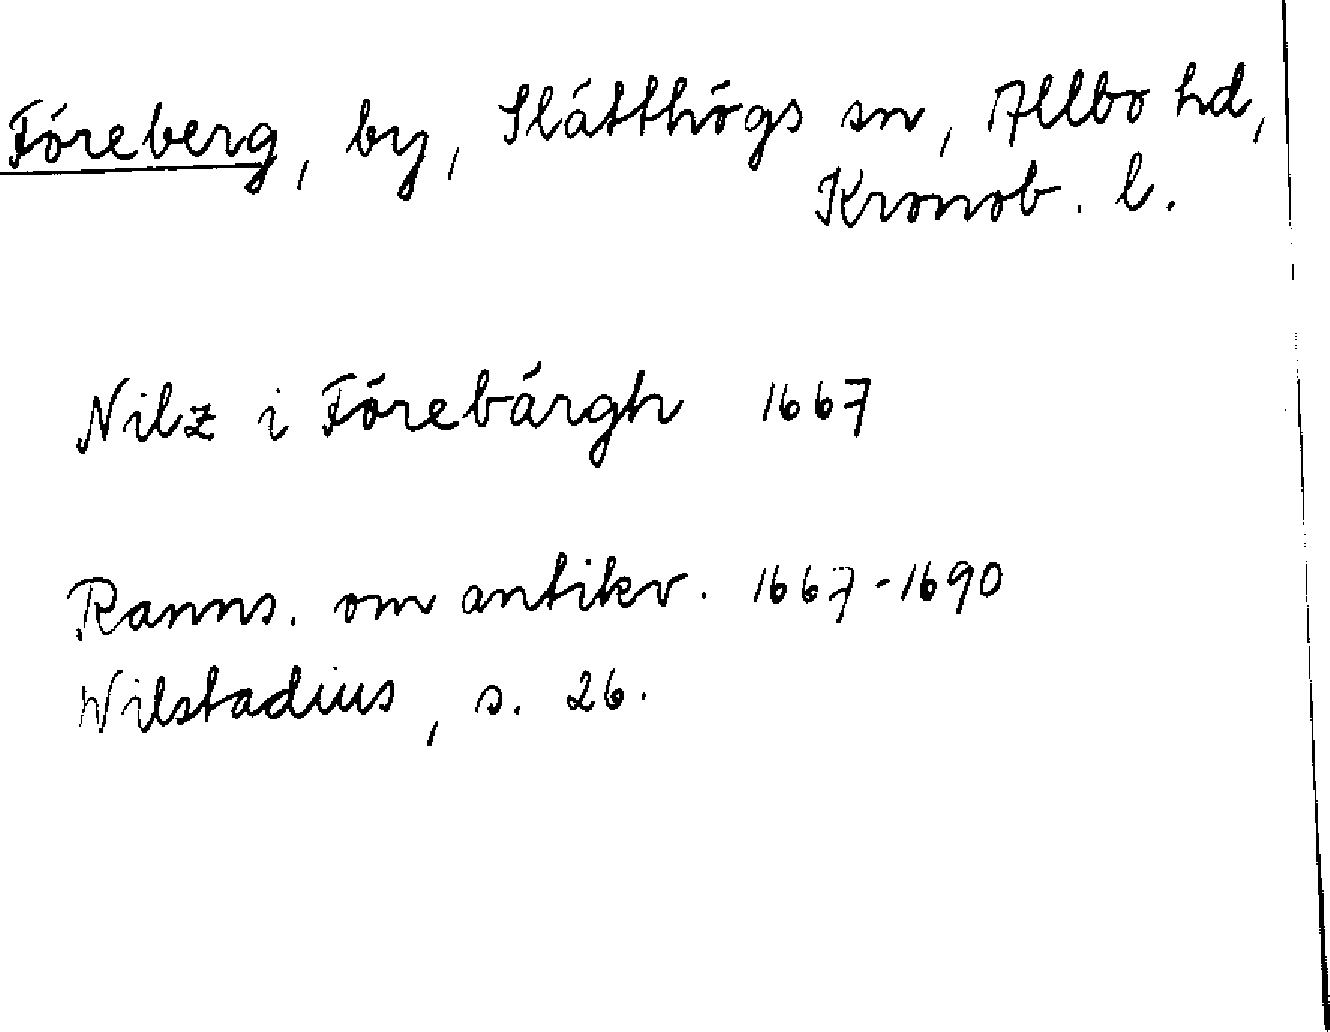 Föreberg, by, Slätthögs sn, Allbo hd,
Kronob. l.
Nilz i Förebärgh 1667
Ranns. om antikv. 1667-1690
Wilstadius, s. 26.